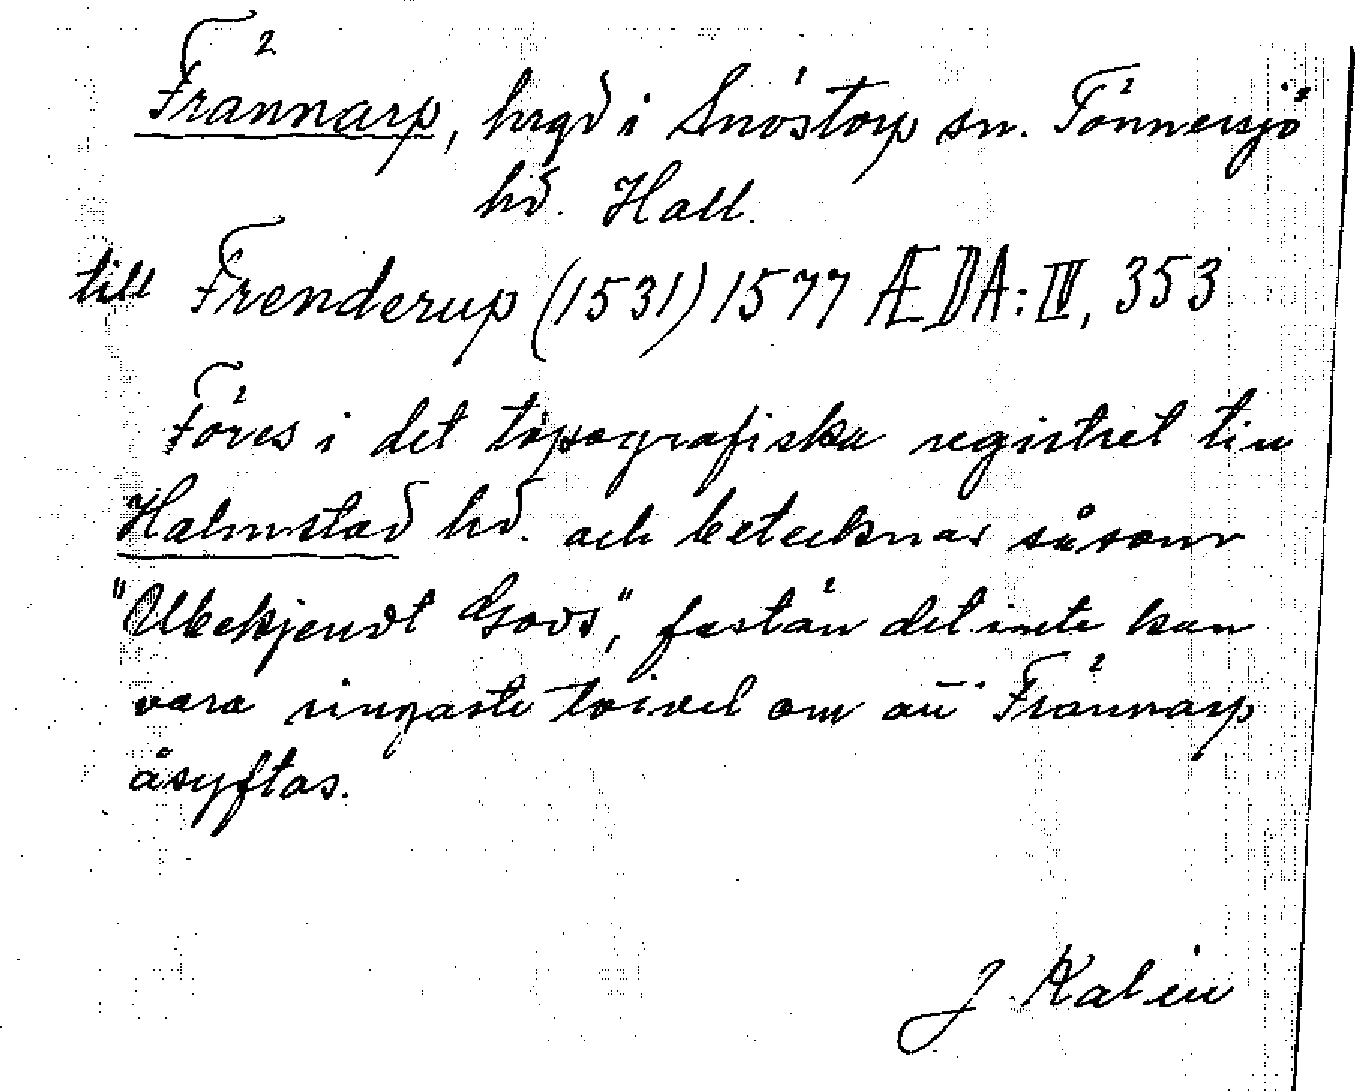 Frännarp, hrgd i Snöstorp sn. Tönnersjö
hd. Hall.
till Frenderup (1531) 1577 ÆDA: IV, 353
Föres i det topografiska registret till
Halmstad hd. och betecknas såsom
"Ubekjendt Gods", fastän det inte kan
vara ringaste tvivel om att Frännarp
åsyftas.
J. Kalén